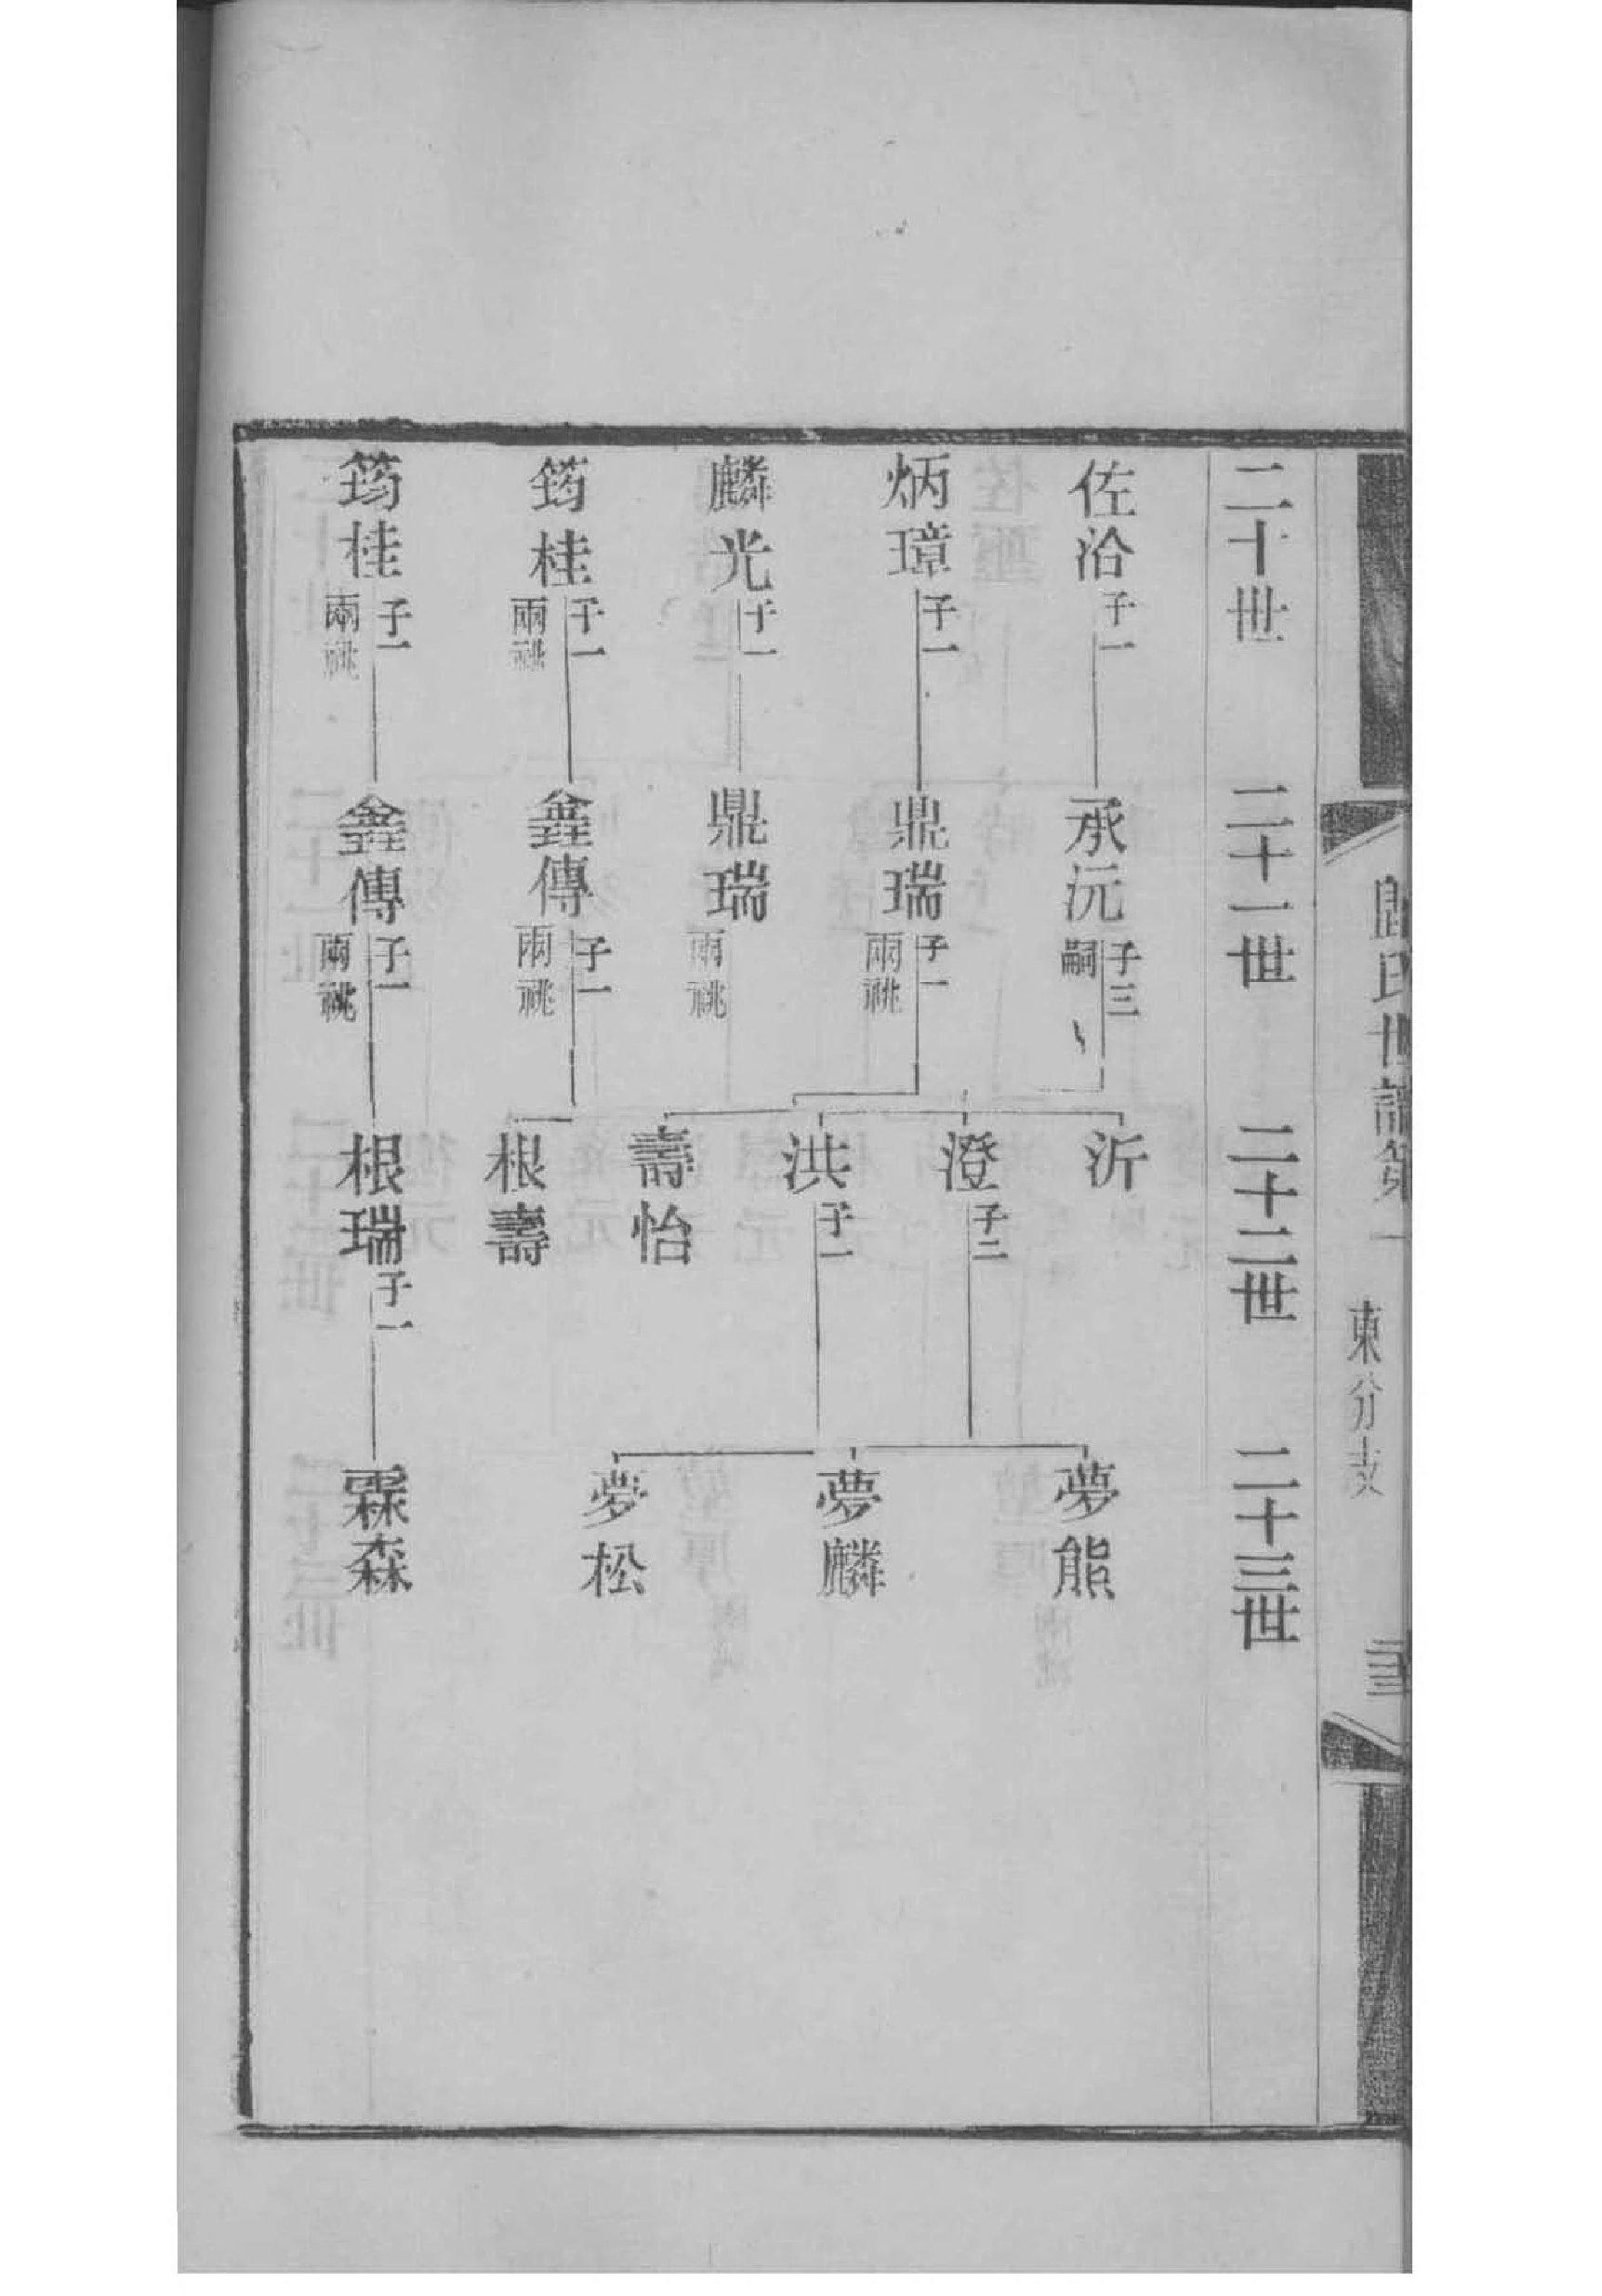 歸氏世譜第一
東分支
二十世
二十一世
二十二世
二十三世
佐洽 子一
承沅 子三 嗣
沂
澄 子二
洪 子一
夢熊
夢麟
夢松
炳璋 子一
鼎瑞 子一 兩祧
壽怡
麟光 子一
鼎瑞 兩祧
筠桂 子一 兩祧
鑫傳 子一 兩祧
根壽
筠桂 子一 兩祧
鑫傳 子一 兩祧
根瑞 子一
霖森